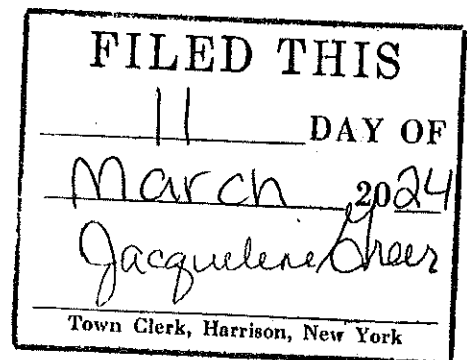 FILED THIS
11 DAY OF
March 2024
Jacqueline Greer
Town Clerk, Harrison, New York